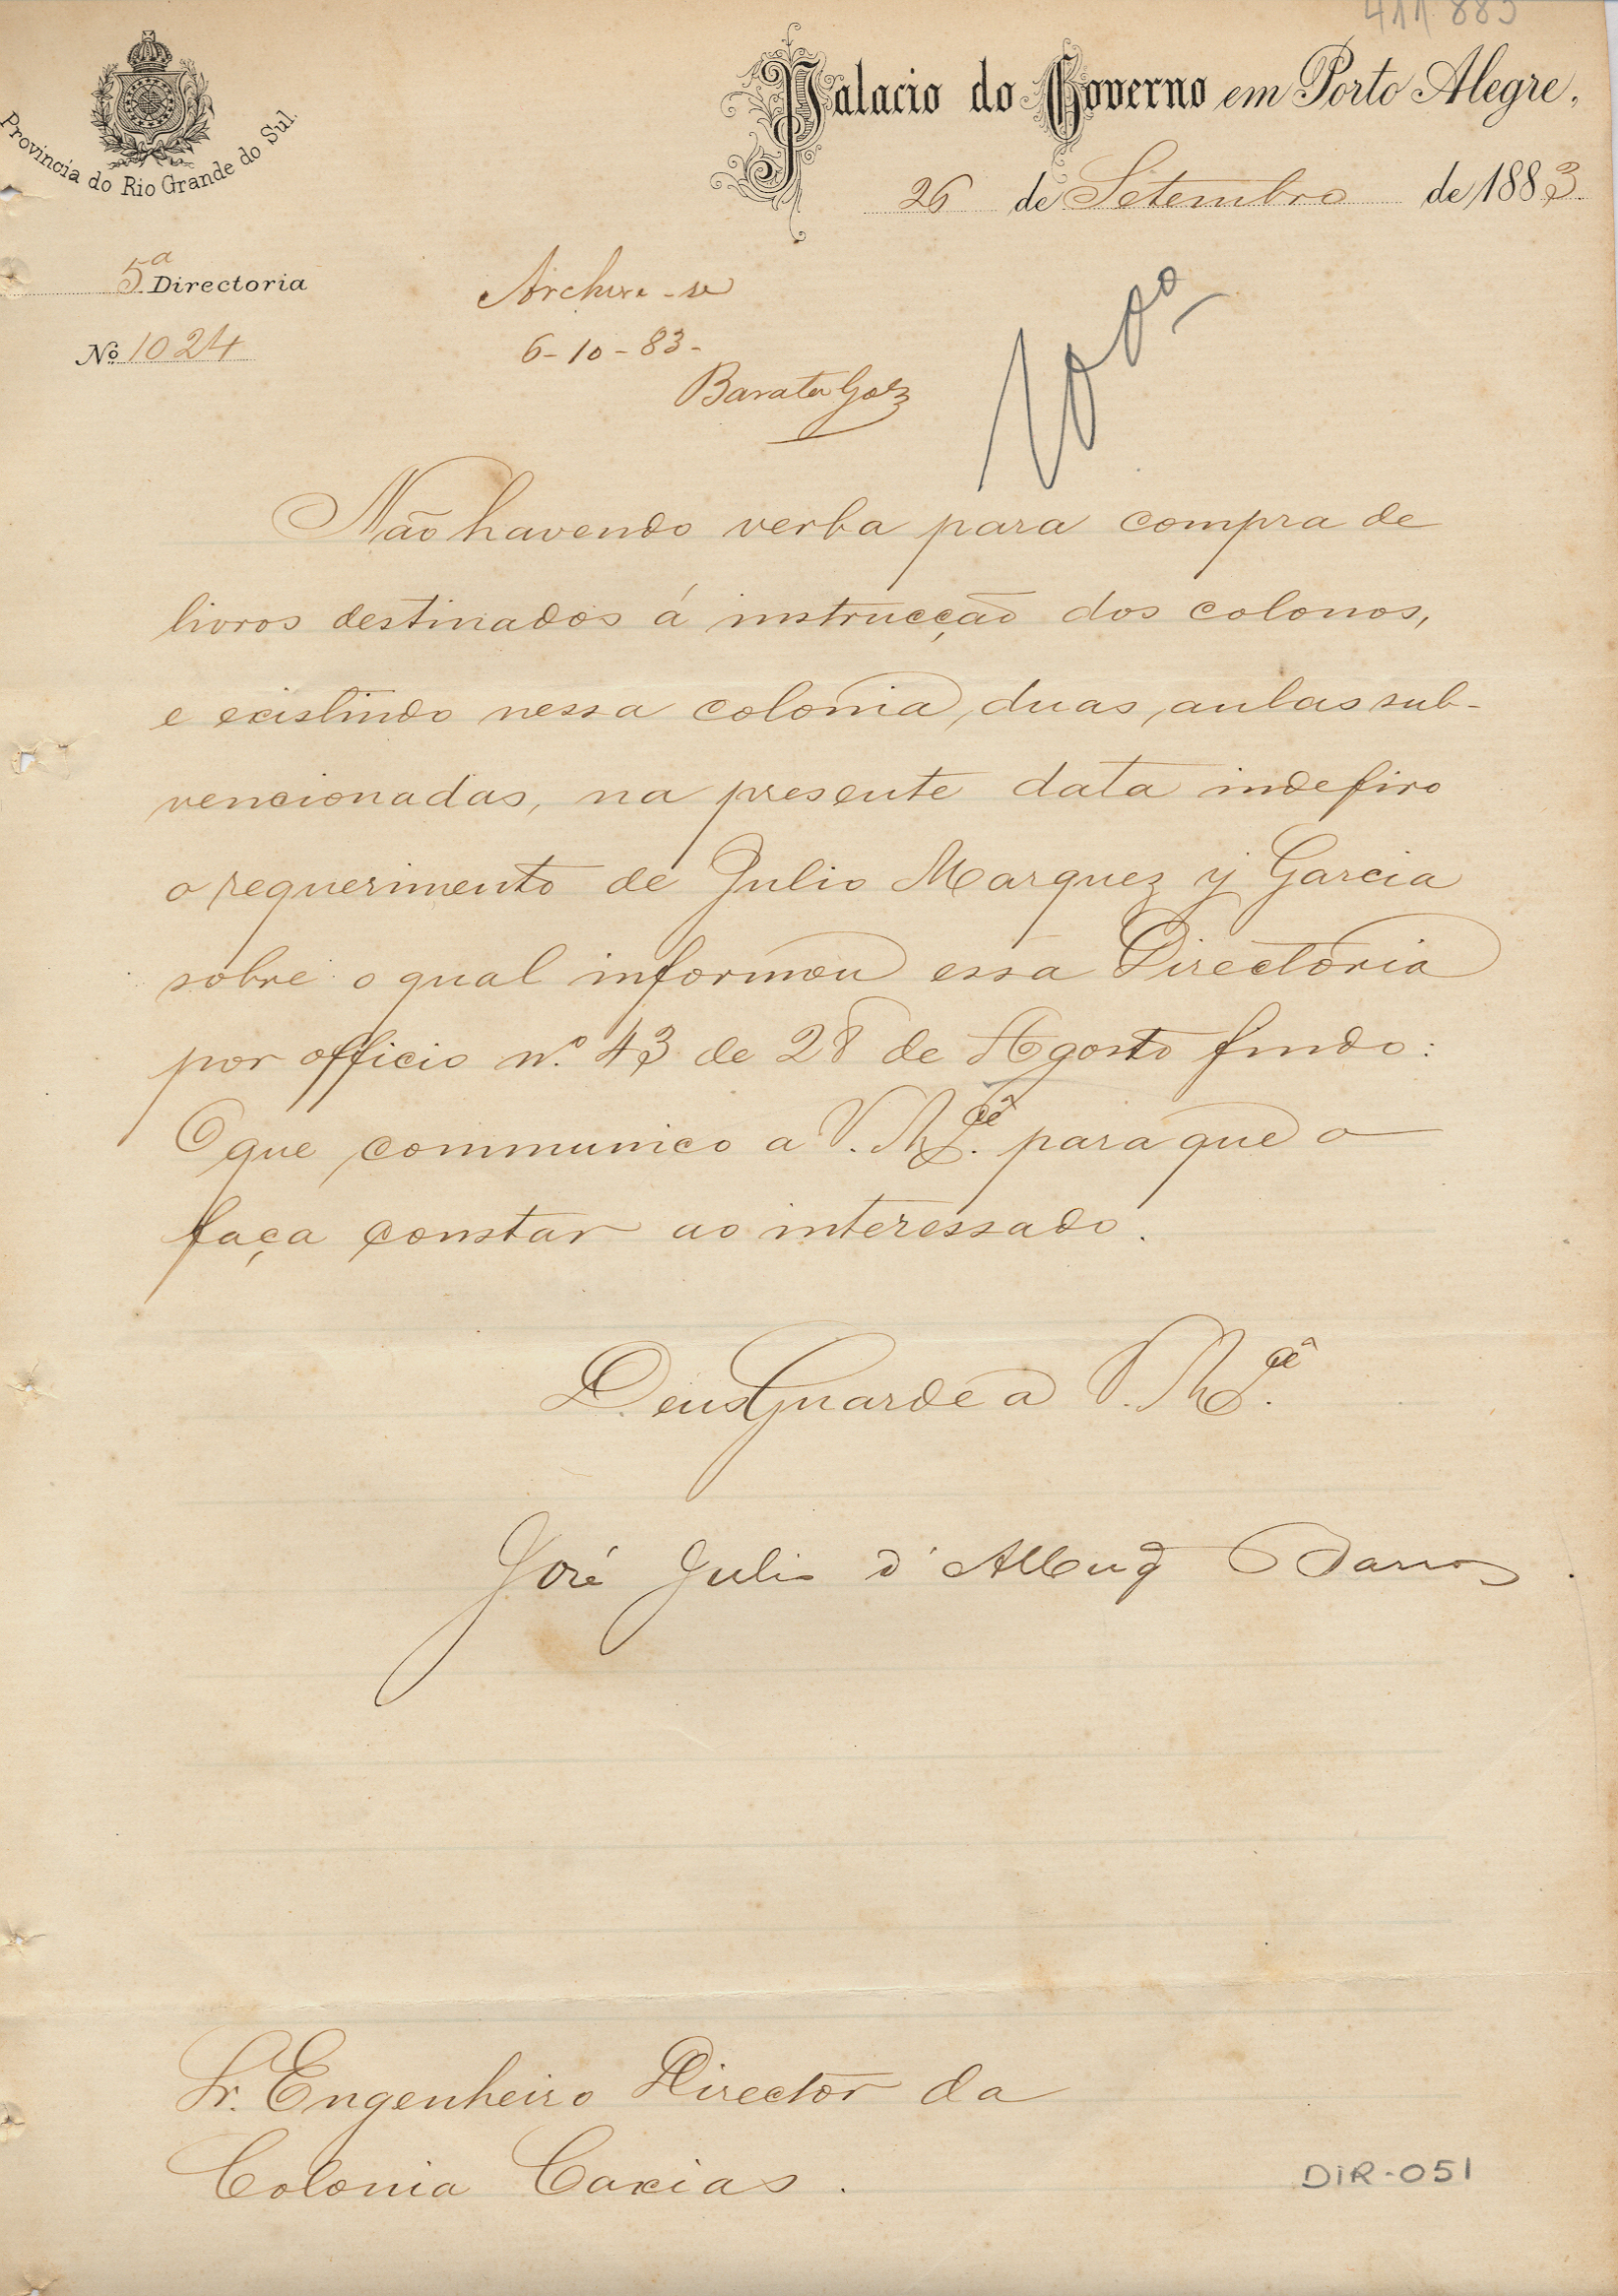 Provincia do Rio Grande do Sul.
Palacio do Governo em Porto Alegre,
26 de Setembro de 1883.
5ª Directoria
Nº 1024
Archive-se
6-10-83-
Barata Goes
Não havendo verba para compra de
livros destinados á instrucção dos colonos,
e existindo nessa colonia, duas, aulas sub-
vencionadas, na presente data indefiro
o requerimento de Julio Marquez y Garcia
sobre o qual informou essa Directoria
por officio n.º 43 de 28 de Agosto findo:
O que communico a V. M.cê para que o
faça constar ao interessado.
Deus Guarde a V. M.cê
José Julio d'Albuq Barros.
Sr. Engenheiro Director da
Colonia Caxias.
DIR-051